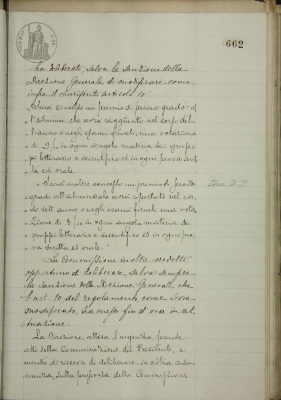 662
ha deliberato, salva la sanzione della
Direzione Generale, di modificare come
infra il surriferito articolo 10.
"Sarà concesso un premio di primo grado al
l'alunna che avrà raggiunto nel corso del
l'anno e negli esami finali, una votazione
di 9/10 in ogni singola materia dei gruppi
letterario e scientifico ed in ogni prova scrit
ta ed orale.
"Sarà inoltre concesso un premio di secondo
grado all'alunna che avrà riportato nel cor
so dell'anno e negli esami finali una vota
zione di 8/10 in ogni singola materia dei
gruppi letterario e scientifico ed in ogni pro
va scritta ed orale."
La Commissione inoltre credette
opportuno di deliberare, salva sempre
la sanzione della Direzione Generale, che
l'art. 10 del regolamento come sopra
modificato, sia messo fin d'ora in at
tuazione.
La Direzione, attesa l'urgenza, prende
atto della Comunicazione del Presidente, e
mentre si riserva di deliberare, in altra adu
nanza, sulla proposta della Commissione